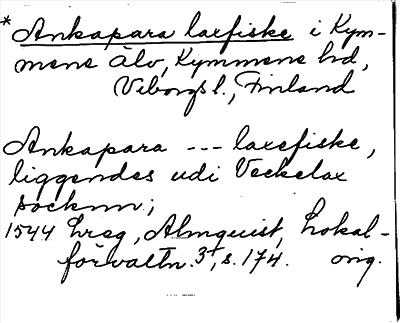 *Ankapara laxfiske i Kym-
mene älv, Kymmene hd,
Viborgs l., Finland
Ankapara --- laxefiske,
liggendes udi Veckelax
socknn;
1544 hreg, Almquist, Lokal-
förvaltn. 3¹, s. 174. orig.